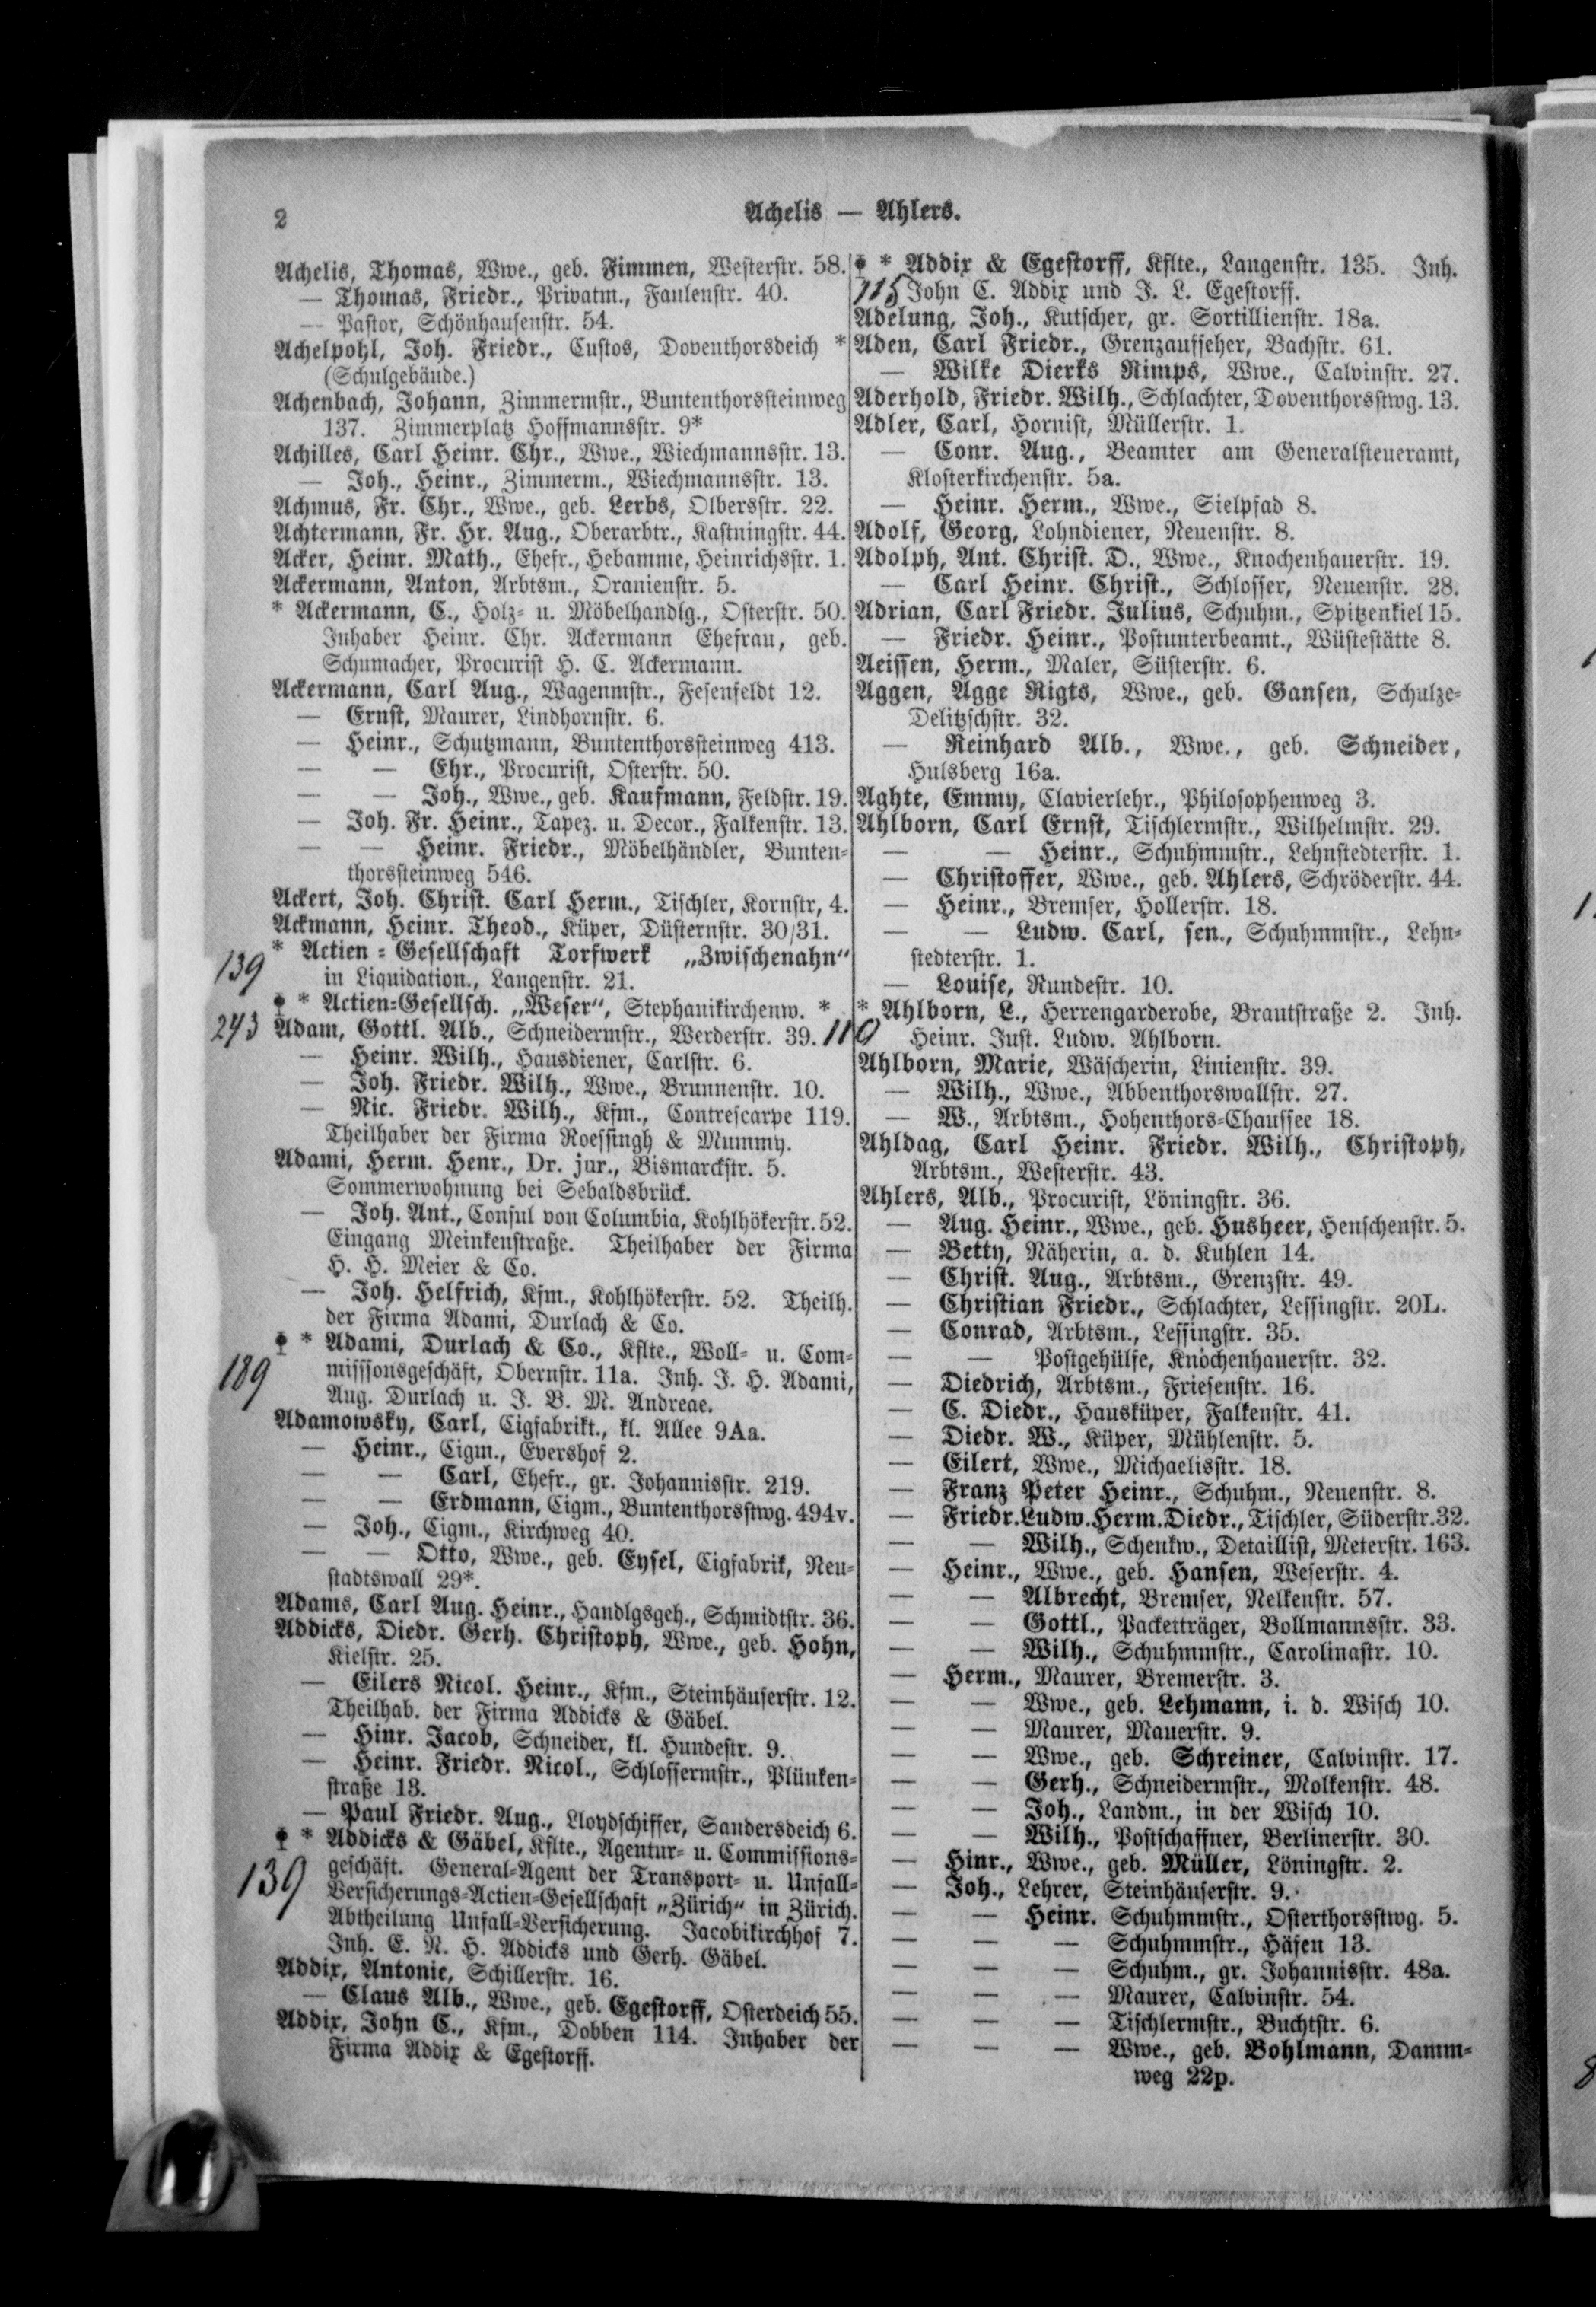 2
Achelis — Ahlers.
Achelis, Thomas, Wwe., geb. Fimmen, Westerstr. 58.
— Thomas, Friedr., Privatm., Faulenstr. 40.
— Pastor, Schönhausenstr. 54.
Achelpohl, Joh. Friedr., Custos, Doventhorsdeich *
(Schulgebäude.)
Achenbach, Johann, Zimmermstr., Buntenthorssteinweg
137. Zimmerplatz Hoffmannsstr. 9*
Achilles, Carl Heinr. Chr., Wwe., Wiechmannsstr. 13.
— Joh., Heinr., Zimmerm., Wiechmannsstr. 13.
Achmus, Fr. Chr., Wwe., geb. Lerbs, Olbersstr. 22.
Achtermann, Fr. Hr. Aug., Oberarbtr., Kastningstr. 44.
Acker, Heinr. Math., Ehefr., Hebamme, Heinrichsstr. 1.
Ackermann, Anton, Arbtsm., Oranienstr. 5.
* Ackermann, C., Holz- u. Möbelhandlg., Osterstr. 50.
Inhaber Heinr. Chr. Ackermann Ehefrau, geb.
Schumacher, Procurist H. C. Ackermann.
Ackermann, Carl Aug., Wagenmstr., Fesenfeldt 12.
— Ernst, Maurer, Lindhornstr. 6.
— Heinr., Schutzmann, Buntenthorssteinweg 413.
— — Chr., Procurist, Osterstr. 50.
— — Joh., Wwe., geb. Kaufmann, Feldstr. 19.
— Joh. Fr. Heinr., Tapez. u. Decor., Falkenstr. 13.
— — Heinr. Friedr., Möbelhändler, Bunten-
thorssteinweg 546.
Ackert, Joh. Christ. Carl Herm., Tischler, Kornstr, 4.
Ackmann, Heinr. Theod., Küper, Düsternstr. 30/31.
* Actien-Gesellschaft Torfwerk „Zwischenahn“
139 in Liquidation., Langenstr. 21.
* Actien-Gesellsch. „Weser“, Stephanikirchenw. *
243 Adam, Gottl. Alb., Schneidermstr., Werderstr. 39.
— Heinr. Wilh., Hausdiener, Carlstr. 6.
— Joh. Friedr. Wilh., Wwe., Brunnenstr. 10.
— Nic. Friedr. Wilh., Kfm., Contrescarpe 119.
Theilhaber der Firma Roessingh & Mummy.
Adami, Herm. Henr., Dr. jur., Bismarckstr. 5.
Sommerwohnung bei Sebaldsbrück.
— Joh. Ant., Consul von Columbia, Kohlhökerstr. 52.
Eingang Meinkenstraße. Theilhaber der Firma
H. H. Meier & Co.
— Joh. Helfrich, Kfm., Kohlhökerstr. 52. Theilh.
der Firma Adami, Durlach & Co.
* Adami, Durlach & Co., Kflte., Woll- u. Com-
189 missionsgeschäft, Obernstr. 11a. Inh. J. H. Adami,
Aug. Durlach u. J. B. M. Andreae.
Adamowsky, Carl, Cigfabrikt., kl. Allee 9Aa.
— Heinr., Cigm., Evershof 2.
— — Carl, Ehefr., gr. Johannisstr. 219.
— — Erdmann, Cigm., Buntenthorsstwg. 494v.
— Joh., Cigm., Kirchweg 40.
— — Otto, Wwe., geb. Eysel, Cigfabrik, Neu-
stadtswall 29*.
Adams, Carl Aug. Heinr., Handlgsgeh., Schmidtstr. 36.
Addicks, Diedr. Gerh. Christoph, Wwe., geb. Hohn,
Kielstr. 25.
— Eilers Nicol. Heinr., Kfm., Steinhäuserstr. 12.
Theilhab. der Firma Addicks & Gäbel.
— Hinr. Jacob, Schneider, kl. Hundestr. 9.
— Heinr. Friedr. Nicol., Schlossermstr., Plünken-
straße 13.
— Paul Friedr. Aug., Lloydschiffer, Sandersdeich 6.
* Addicks & Gäbel, Kflte., Agentur- u. Commissions-
139 geschäft. General-Agent der Transport- u. Unfall-
Versicherungs-Actien-Gesellschaft „Zürich“ in Zürich.
Abtheilung Unfall-Versicherung. Jacobikirchhof 7.
Inh. E. N. H. Addicks und Gerh. Gäbel.
Addix, Antonie, Schillerstr. 16.
— Claus Alb., Wwe., geb. Egestorff, Osterdeich 55.
Addix, John C., Kfm., Dobben 114. Inhaber der
Firma Addix & Egestorff.
* Addix & Egestorff, Kflte., Langenstr. 135. Inh.
115 John C. Addix und J. L. Egestorff.
Adelung, Joh., Kutscher, gr. Sortillienstr. 18a.
Aden, Carl Friedr., Grenzaufseher, Bachstr. 61.
— Wilke Dierks Rimps, Wwe., Calvinstr. 27.
Aderhold, Friedr. Wilh., Schlachter, Doventhorsstwg. 13.
Adler, Carl, Hornist, Müllerstr. 1.
— Conr. Aug., Beamter am Generalsteueramt,
Klosterkirchenstr. 5a.
— Heinr. Herm., Wwe., Sielpfad 8.
Adolf, Georg, Lohndiener, Neuenstr. 8.
Adolph, Ant. Christ. D., Wwe., Knochenhauerstr. 19.
— Carl Heinr. Christ., Schlosser, Neuenstr. 28.
Adrian, Carl Friedr. Julius, Schuhm., Spitzenkiel 15.
— Friedr. Heinr., Postunterbeamt., Wüstestätte 8.
Aeissen, Herm., Maler, Süsterstr. 6.
Aggen, Agge Rigts, Wwe., geb. Gansen, Schulze-
Delitzschstr. 32.
— Reinhard Alb., Wwe., geb. Schneider,
Hulsberg 16a.
Aghte, Emmy, Clavierlehr., Philosophenweg 3.
Ahlborn, Carl Ernst, Tischlermstr., Wilhelmstr. 29.
— — Heinr., Schuhmmstr., Lehnstedterstr. 1.
— Christoffer, Wwe., geb. Ahlers, Schröderstr. 44.
— Heinr., Bremser, Hollerstr. 18.
— — Ludw. Carl, sen., Schuhmmstr., Lehn-
stedterstr. 1.
— Louise, Rundestr. 10.
* Ahlborn, L., Herrengarderobe, Brautstraße 2. Inh.
110 Heinr. Just. Ludw. Ahlborn.
Ahlborn, Marie, Wäscherin, Linienstr. 39.
— Wilh., Wwe., Abbenthorswallstr. 27.
— W., Arbtsm., Hohenthors-Chaussee 18.
Ahldag, Carl Heinr. Friedr. Wilh., Christoph,
Arbtsm., Westerstr. 43.
Ahlers, Alb., Procurist, Löningstr. 36.
— Aug. Heinr., Wwe., geb. Husheer, Henschenstr. 5.
— Betty, Näherin, a. d. Kuhlen 14.
— Christ. Aug., Arbtsm., Grenzstr. 49.
— Christian Friedr., Schlachter, Lessingstr. 20L.
— Conrad, Arbtsm., Lessingstr. 35.
— — Postgehülfe, Knochenhauerstr. 32.
— Diedrich, Arbtsm., Friesenstr. 16.
— C. Diedr., Hausküper, Falkenstr. 41.
— Diedr. W., Küper, Mühlenstr. 5.
— Eilert, Wwe., Michaelisstr. 18.
— Franz Peter Heinr., Schuhm., Neuenstr. 8.
— Friedr. Ludw. Herm. Diedr., Tischler, Süderstr. 32.
— — Wilh., Schenkw., Detaillist, Meterstr. 163.
— Heinr., Wwe., geb. Hansen, Weserstr. 4.
— — Albrecht, Bremser, Nelkenstr. 57.
— — Gottl., Packetträger, Bollmannsstr. 33.
— — Wilh., Schuhmmstr., Carolinastr. 10.
— Herm., Maurer, Bremerstr. 3.
— — Wwe., geb. Lehmann, i. d. Wisch 10.
— — Maurer, Mauerstr. 9.
— — Wwe., geb. Schreiner, Calvinstr. 17.
— — Gerh., Schneidermstr., Molkenstr. 48.
— — Joh., Landm., in der Wisch 10.
— — Wilh., Postschaffner, Berlinerstr. 30.
— Hinr., Wwe., geb. Müller, Löningstr. 2.
— Joh., Lehrer, Steinhäuserstr. 9.
— — Heinr. Schuhmmstr., Osterthorsstwg. 5.
— — — Schuhmmstr., Häfen 13.
— — — Schuhm., gr. Johannisstr. 48a.
— — — Maurer, Calvinstr. 54.
— — — Tischlermstr., Buchtstr. 6.
— — — Wwe., geb. Bohlmann, Damm-
weg 22p.